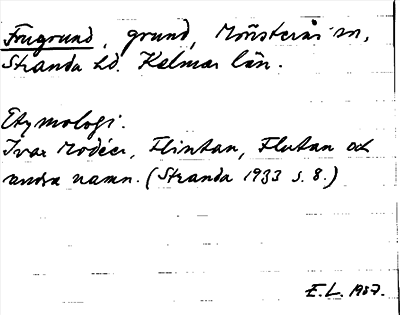 Frugrund, grund, Mönsterås sn,
Stranda hd. Kalmar län.
Etymologi.
Ivar Modéer, Flintan, Flutan och
andra namn. (Stranda 1933 s. 8.)
E.L. 1987.